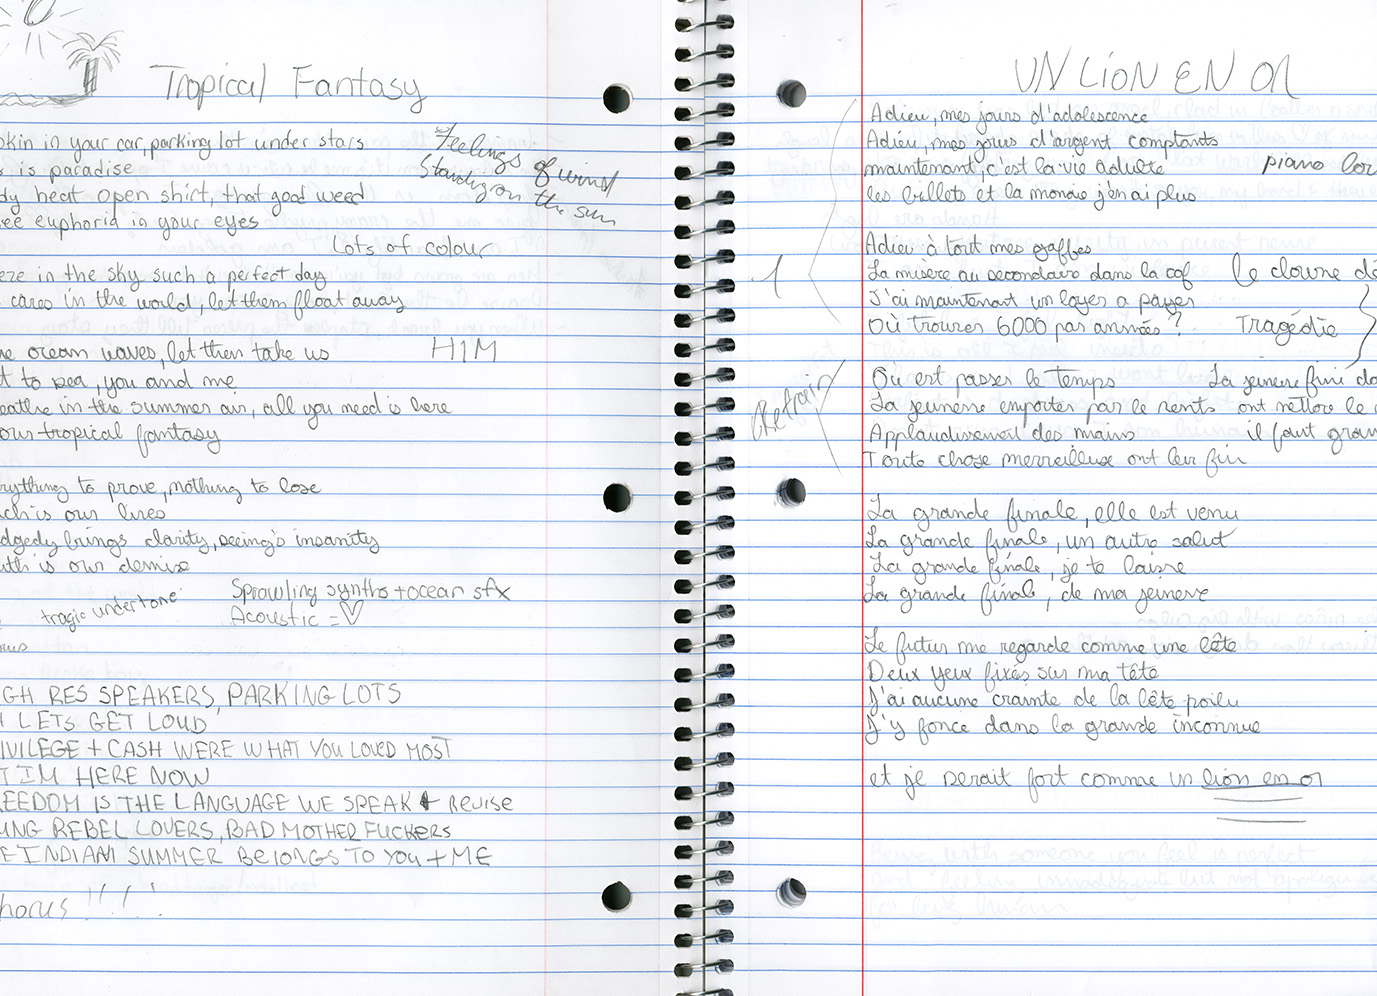 Tropical Fantasy
in your car, parking lot under stars
is paradise
heat open shirt, that good weed
euphoria in your eyes
Feelings of wind
Standing on the sun
Lots of colour
in the sky such a perfect day
cares in the world, let them float away
ocean waves, let them take us
HIM
to sea, you and me
in the summer air, all you need is here
our tropical fantasy
to prove, nothing to lose
is our lives
brings clarity, seeing's insanity
is our demise
tragic undertone
Sprawling synths + ocean sfx
Acoustic = ♡
RES SPEAKERS, PARKING LOTS
LETS GET LOUD
+ CASH WERE WHAT YOU LOVED MOST
IM HERE NOW
IS THE LANGUAGE WE SPEAK + Revise
REBEL LOVERS, BAD MOTHER FUCKERS
INDIAN SUMMER BELONGS TO YOU + ME
!!!!!
UN LION EN OR
Adieu, mes jours d'adolescence
Adieu, mes jours d'argent comptants
maintenant, c'est la vie adulte
piano
les billets et la monaie j'en ai plus
Adieu à tout mes gaffes
1
La misère au secondaire dans la caf
le clowne
J'ai maintenant un loyer a payer
Où trouver 6000 par années?
Tragédie
Refrain
Où est passer le temps
La jeunesse emporter par le vents
Applaudissement des mains
il faut
Touts chose merveilleux ont leur fin
La grande finale, elle est venu
La grande finale, un autre salut
La grande finale, je te laisse
La grande finale, de ma jeunesse
Le futur me regarde comme une bête
Deux yeux fixés sur ma tête
J'ai aucune crainte de la bête poilu
J'y fonce dans la grande inconnue
et je serait fort comme un lion en or